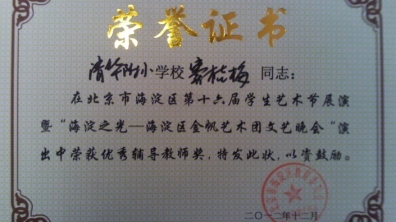 荣誉证书
清华附小学校 梅 同志：
在北京市海淀区第十六届学生艺术节展演
暨“海淀之光—海淀区金帆艺术团文艺晚会”演
出中荣获优秀辅导教师奖，特发此状，以资鼓励。
二〇一二年十二月